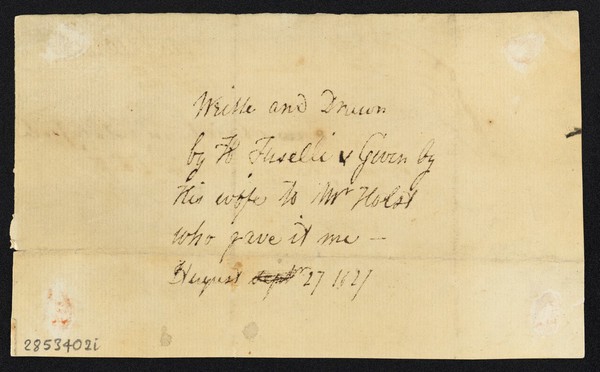 Writte and Drawn
by H Fuselli & Given by
His wife to Mr Holst
who gave it me —
August 27 1827
2853402i